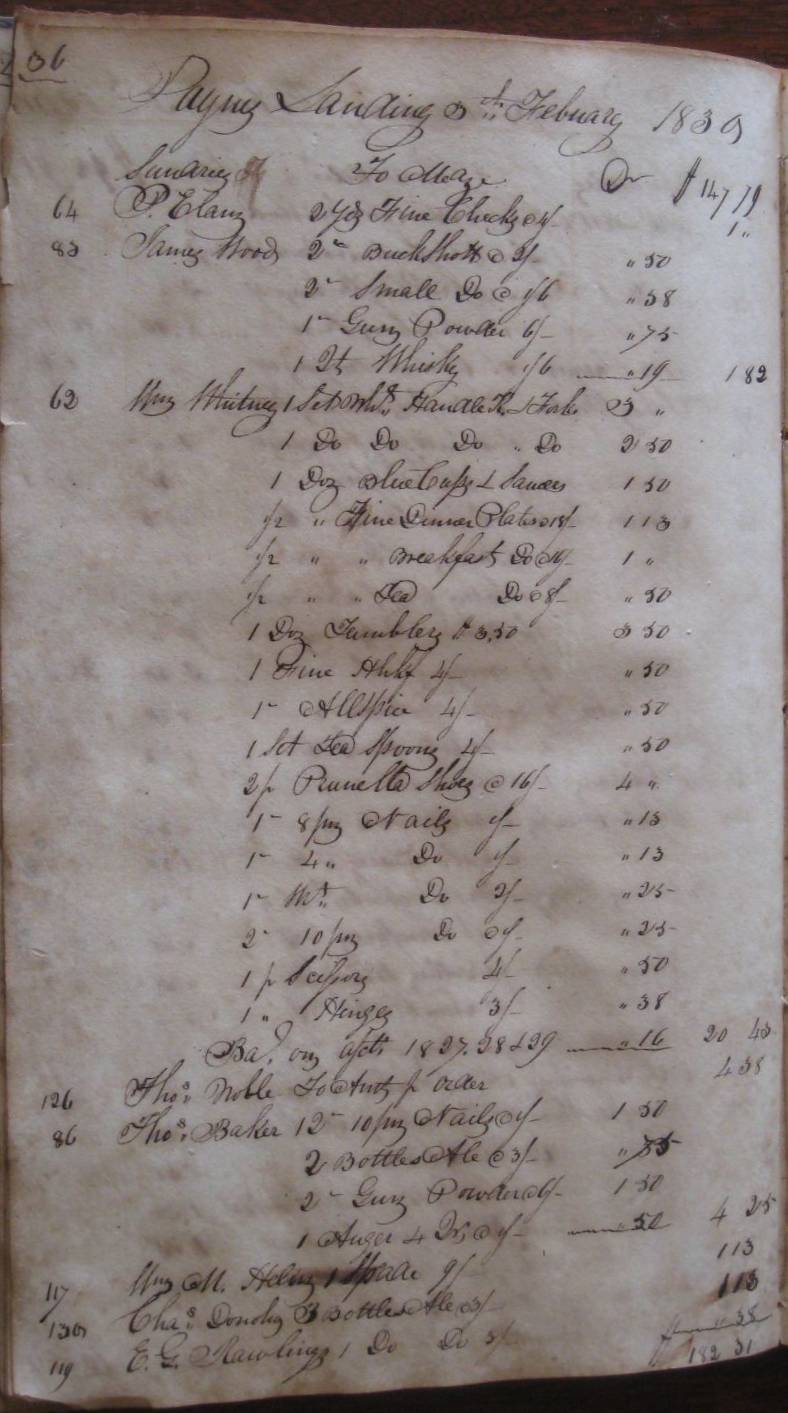 36
Paynes Landing 3th Febuary 1830
Sundries To Mdze Dr $147 79
64 P. Elam 2 yds Fine Checks @ 4/- 1 "
83 James Wood 2 " Buck Shott @ 2/- " 50
2 " Small Do @ 1/6 " 38
1 " Gun Powder 6/- " 75
1 Qt Whisky 1/6 " 19 1 82
62 Wm Whitney 1 Set Wht Handle K & Forks 3 "
1 Do Do Do " Do 2 50
1 Doz Blue Cups & Saucers 1 50
1/2 " Fine Dinner Plates @ 18/- 1 13
1/2 " " Breakfast Do @ 16/- 1 "
1/2 " " Tea Do @ 8/- " 50
1 Doz Tumblers $3,50 3 50
1 Fine Hhkf 4/- " 50
1 " Allspice 4/- " 50
1 Set Tea Spoons 4/- " 50
2 p Prunella Shoes @ 16/- 4 "
1 " 8 pny Nails 1/- " 13
1 " 4 " Do 1/- " 13
1 " Wt Do 2/- " 25
2 " 10 pny Do @ 1/- " 25
1 p Scissors 4/- " 50
1 " Hinges 3/- " 38
Bal. on acts 1827.28 & 29 " 16 20 43
126 Thos. Noble To Amt p order 4 38
86 Thos. Baker 12 " 10 pny Nails @ 1/- 1 50
2 Bottles Ale @ 3/- " 75
2 " Gun Powder @ 6/- 1 50
1 Auger 4 Qrs @ 1/- " 50 4 25
117 Wm M. 1 Spade 9/- 1 13
130 Chas. Donoho 3 Bottles Ale @ 3/- 1 13
119 E. G. Rawlings 1 Do Do 3/- " 38
$ 182 31